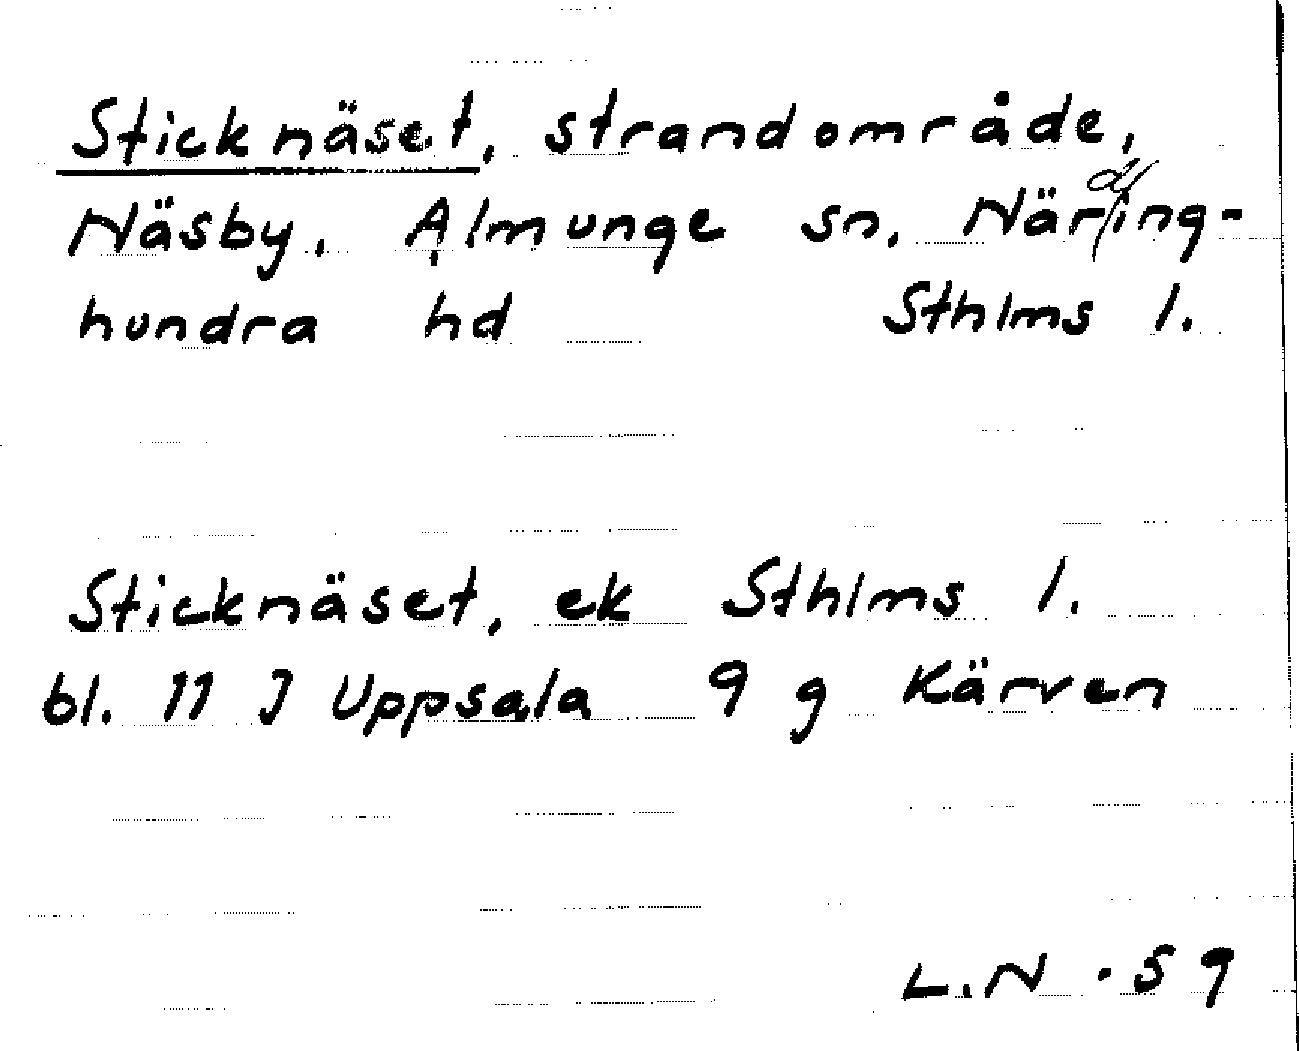 Sticknäset, strandområde,
Näsby. Almunge sn. Närding-
hundra hd Sthlms l.
Sticknäset, ek Sthlms l.
bl. 11 J Uppsala 9 g Kärven
L.N . 59